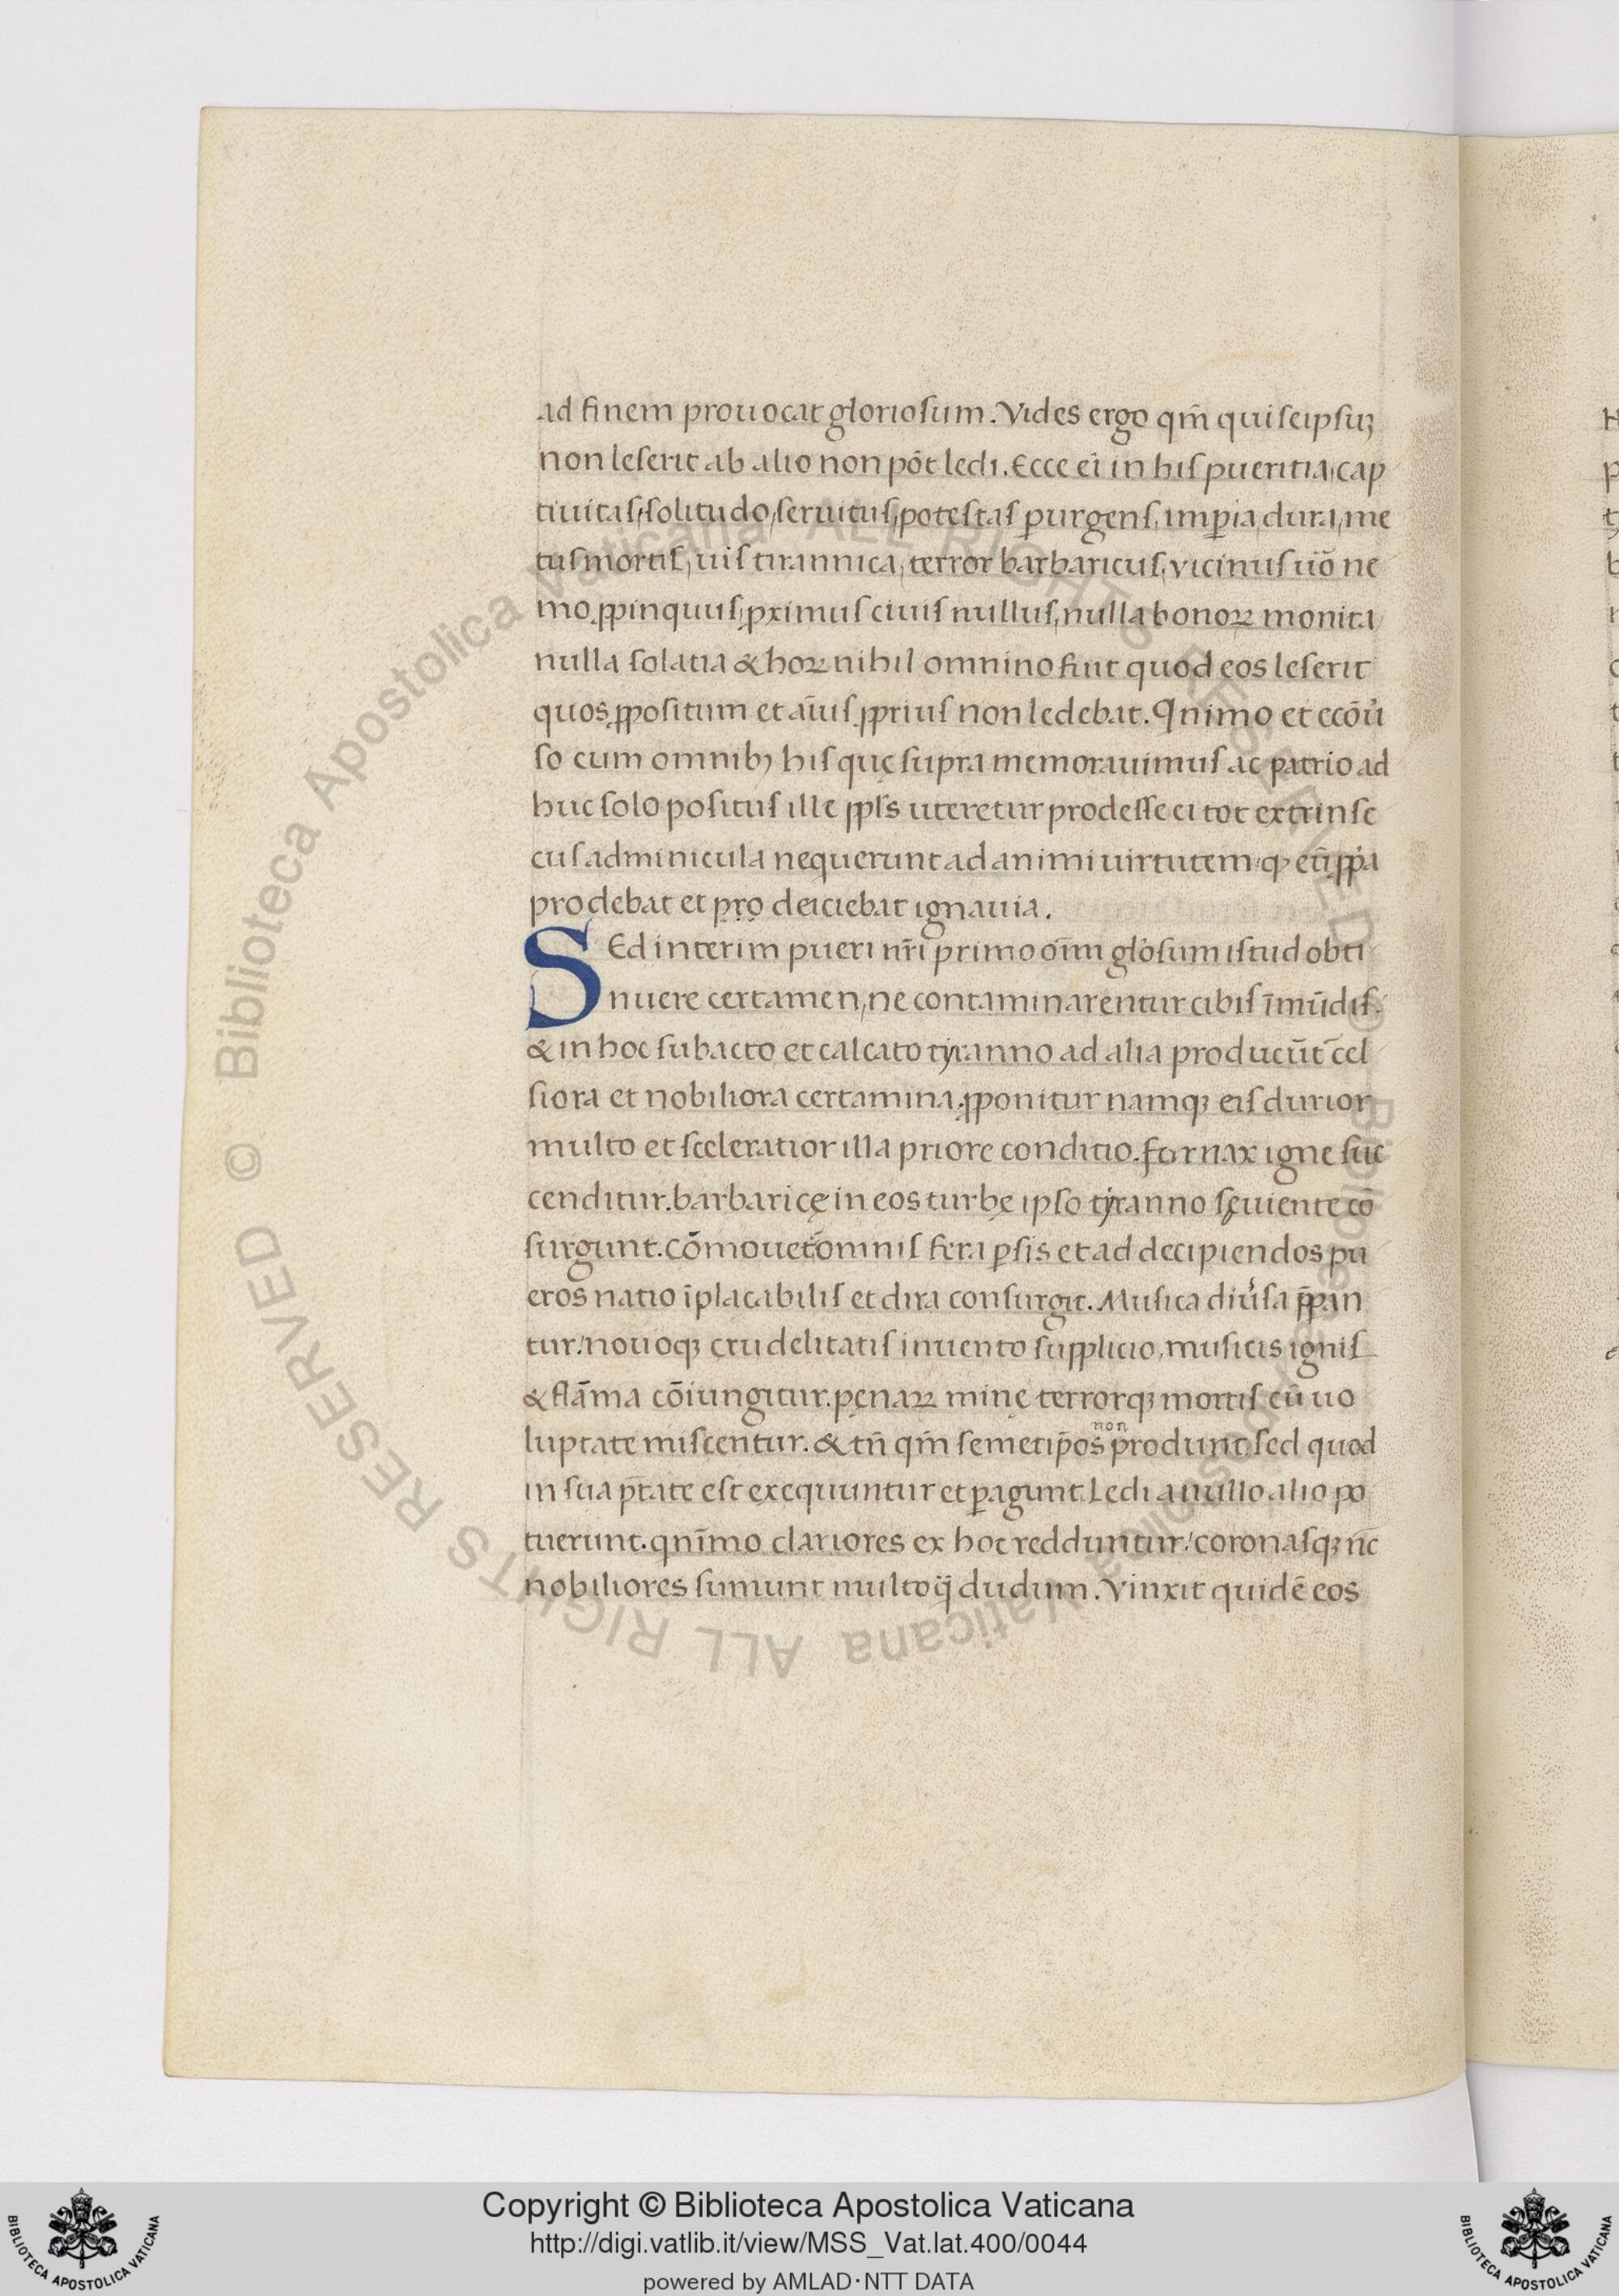 ad finem prouocat gloriosum. Vides ergo qm̄ qui seipsuꝫ
non leserit ab alio non pōt ledi. Ecce ei̅ in his pueritia, cap
tiuitas, solitudo, seruitus, potestas ꝑurgens, imꝑia dura, me
tus mortis, uis tirannica, terror barbaricus, vicinus uo̅ ne
mo, ꝓpinquus, ꝓximus ciuis nullus, nulla bonoꝝ monita
nulla solatia & hoꝝ nihil omnino fuit quod eos leserit
quos ꝓpositum et ai̅us ꝓprius non ledebat. Qnimo et eco̅u̓
so cum omnibꝫ his quę supra memorauimus ac patrio ad
huc solo positus ille ppl̅s uteretur prodesse ei tot extrinse
cus adminicula nequerunt ad animi uirtutem qꝫ
prodebat et deiciebat ignauia.
SEd interim pueri nr̅i primo glo̓sum istud obti
nuere certamen, ne contaminarentur cibis i̅mu̅dis.
& in hoc subacto et calcato tyranno ad alia producu̅t cel
siora et nobiliora certamina. ꝓponitur namqꝫ eis durior
multo et sceleratior illa priore conditio. fornax igne suc
cenditur. barbaricę in eos turbę ipso tyranno sęuiente co̅
surgunt. Co̅mouet̅ omnis fera ꝑsis et ad decipiendos pu
eros natio i̅placabilis et dira consurgit. Musica diu̓sa p̅pan
tur. nouoqꝫ crudelitatis inuento supplicio, musicis ignis
& fla̅ma co̅iungitur. pęnaꝝ minę terrorqꝫ mortis cu̅ uo
luptate miscentur. & tn̅ qm̅ semetip̅os non produnt, sed quod
in sua ptāte est exequuntur et ꝑagunt. Ledi a nullo alio po
tuerunt. qni̅mo clariores ex hoc redduntur. coronasqꝫ nc̅
nobiliores sumunt multo q̅ dudum. Vinxit quide̅ eos
Copyright © Biblioteca Apostolica Vaticana
http://digi.vatlib.it/view/MSS_Vat.lat.400/0044
powered by AMLAD·NTT DATA